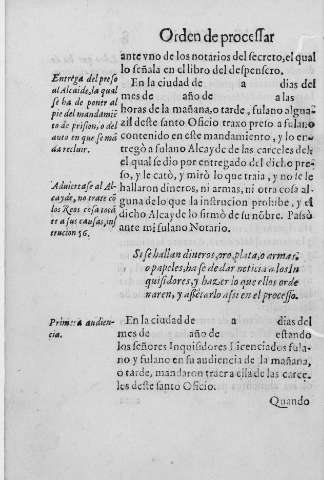 Orden de processar
ante vno de los notarios del secreto, el qual
lo señala en el libro del despensero.
Entrega del preso
al Alcaide, la qual
se ha de poner al
pie del mandamiento
to de prision, o del
auto en que se mã
da recluir.
En la ciudad de a dias del
mes de año de a las
horas de la mañana, o tarde, fulano algua-
zil deste santo Oficio traxo preso a fulano
contenido en este mandamiento, y lo en-
tregò a fulano Alcayde de las carceles del-
el qual se dio por entregado del dicho pre-
so, y le catò, y mirò lo que traia, y no se le
hallaron dineros, ni armas, ni otra cosa al-
guna delo que la instrucion prohibe, y el
dicho Alcayde lo firmò de su nõbre. Passò
ante mi fulano Notario.
Aduiertase al Al-
cayde, no trate cõ
los Reos cosa tocã
te a sus causas, ins
trucion 56.
Si se hallan dineros, oro, plata, o armas,
o papeles, ha se de dar noticia a los In
quisidores, y hazer lo que ellos orde
naren, y assẽtarlo assi en el processo.
Primera audien-
cia.
En la ciudad de a dias del
mes de año de estando
los señores Inquisidores Licenciados fula-
no y fulano en su audiencia de la mañana,
o tarde, mandaron traer a ella de las carce-
les deste santo Oficio.
Quando